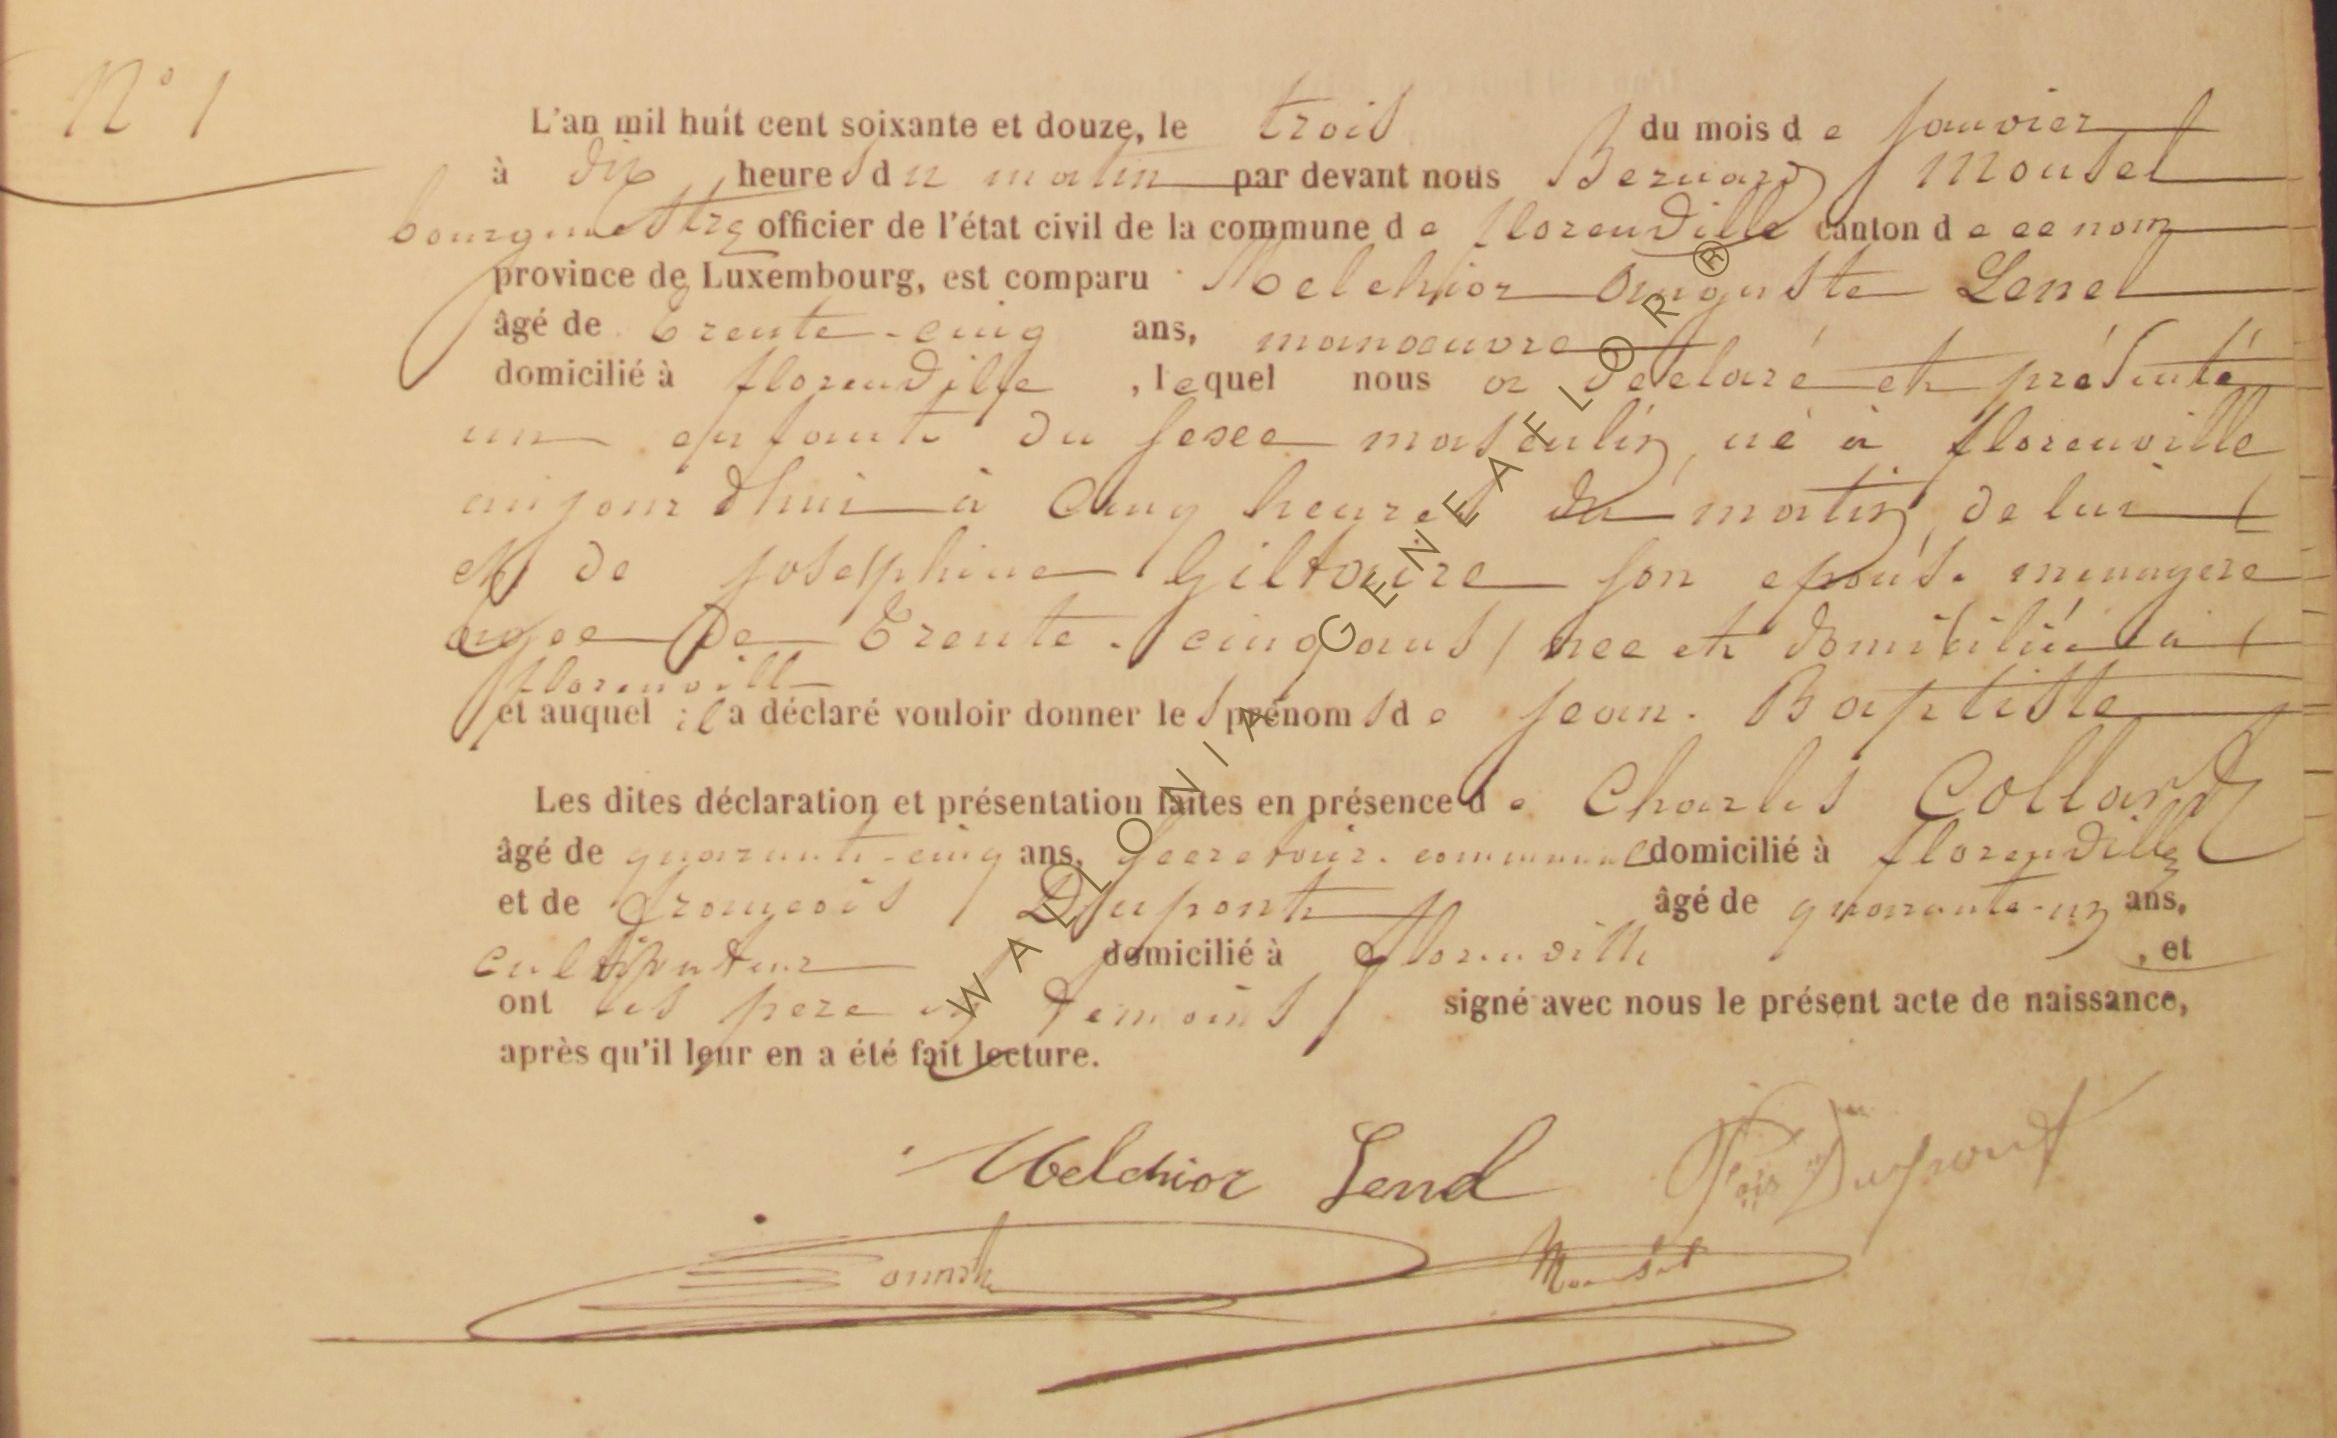 N° 1
L'an mil huit cent soixante et douze, le trois du mois de Janvier
à dix heures du matin par devant nous Bernard Mousel
bourgmestre officier de l'état civil de la commune de florenville canton de ce nom
province de Luxembourg, est comparu Melchior Auguste Lenel
âgé de Trente-cinq ans, manoeuvre
domicilié à florenville, lequel nous a déclaré et présenté
un enfant du sexe masculin, né à florenville
aujourdhui à Cinq heures du matin, de lui
et de Joséphine Giltaire son épouse ménagère
agee de Trente-cinq ans, née et domiciliée à
florenville
et auquel il a déclaré vouloir donner les prénoms de Jean-Baptiste
Les dites déclaration et présentation faites en présence de Charles Collard
âgé de quarante-cinq ans, secretaire communal domicilié à florenville
et de François Dupont âgé de quarante-un ans,
cultivateur domicilié à florenville, et
ont les pere et temoins signé avec nous le présent acte de naissance,
après qu'il leur en a été fait lecture.
Melchior Lenel Fçois Dupont
Mousel
WALLONIA GENEAFLOR ®